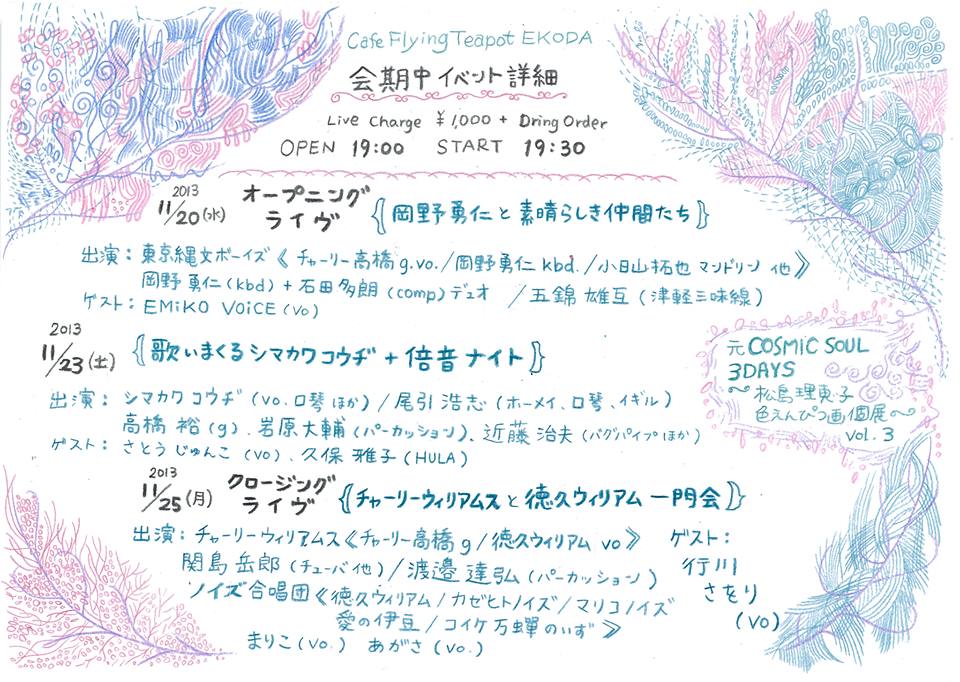 Cafe Flying Teapot EKODA
会期中 イベント詳細
Live Charge ¥1,000 + Dring Order
OPEN 19:00 START 19:30
2013 11/20(水) オープニング ライヴ 《岡野勇仁と素晴らしき仲間たち》
出演：東京縄文ボーイズ《チャーリー高橋 g.vo./岡野勇仁 kbd./小日山拓也 マンドリン 他》
岡野勇仁(kbd)+石田多朗(comp)デュオ /五錦雄互(津軽三味線)
ゲスト：EMiKO VOiCE(vo)
2013 11/23(土) 《歌いまくるシマカワコウヂ + 倍音ナイト》
出演：シマカワコウヂ(vo.口琴ほか)/尾引浩志(ホーメイ、口琴、イギル)
高橋裕(g)、岩原大輔(パーカッション)、近藤治夫(バグパイプほか)
ゲスト：さとうじゅんこ(vo)、久保雅子(HULA)
元 COSMIC SOUL
3DAYS
松島理恵子
色えんぴつ画個展
vol.3
2013 11/25(月) クロージング ライヴ 《チャーリーウィリアムスと徳久ウィリアム一門会》
出演：チャーリーウィリアムス《チャーリー高橋 g/徳久ウィリアム vo》
関島岳郎(チューバ他)/渡邉達弘(パーカッション)
ノイズ合唱団《徳久ウィリアム/カゼヒトノイズ/マリコノイズ
愛の伊豆/コイケ万蟬のいず》
まりこ(vo.) あがさ(vo.)
ゲスト：
行川
さをり
(vo)